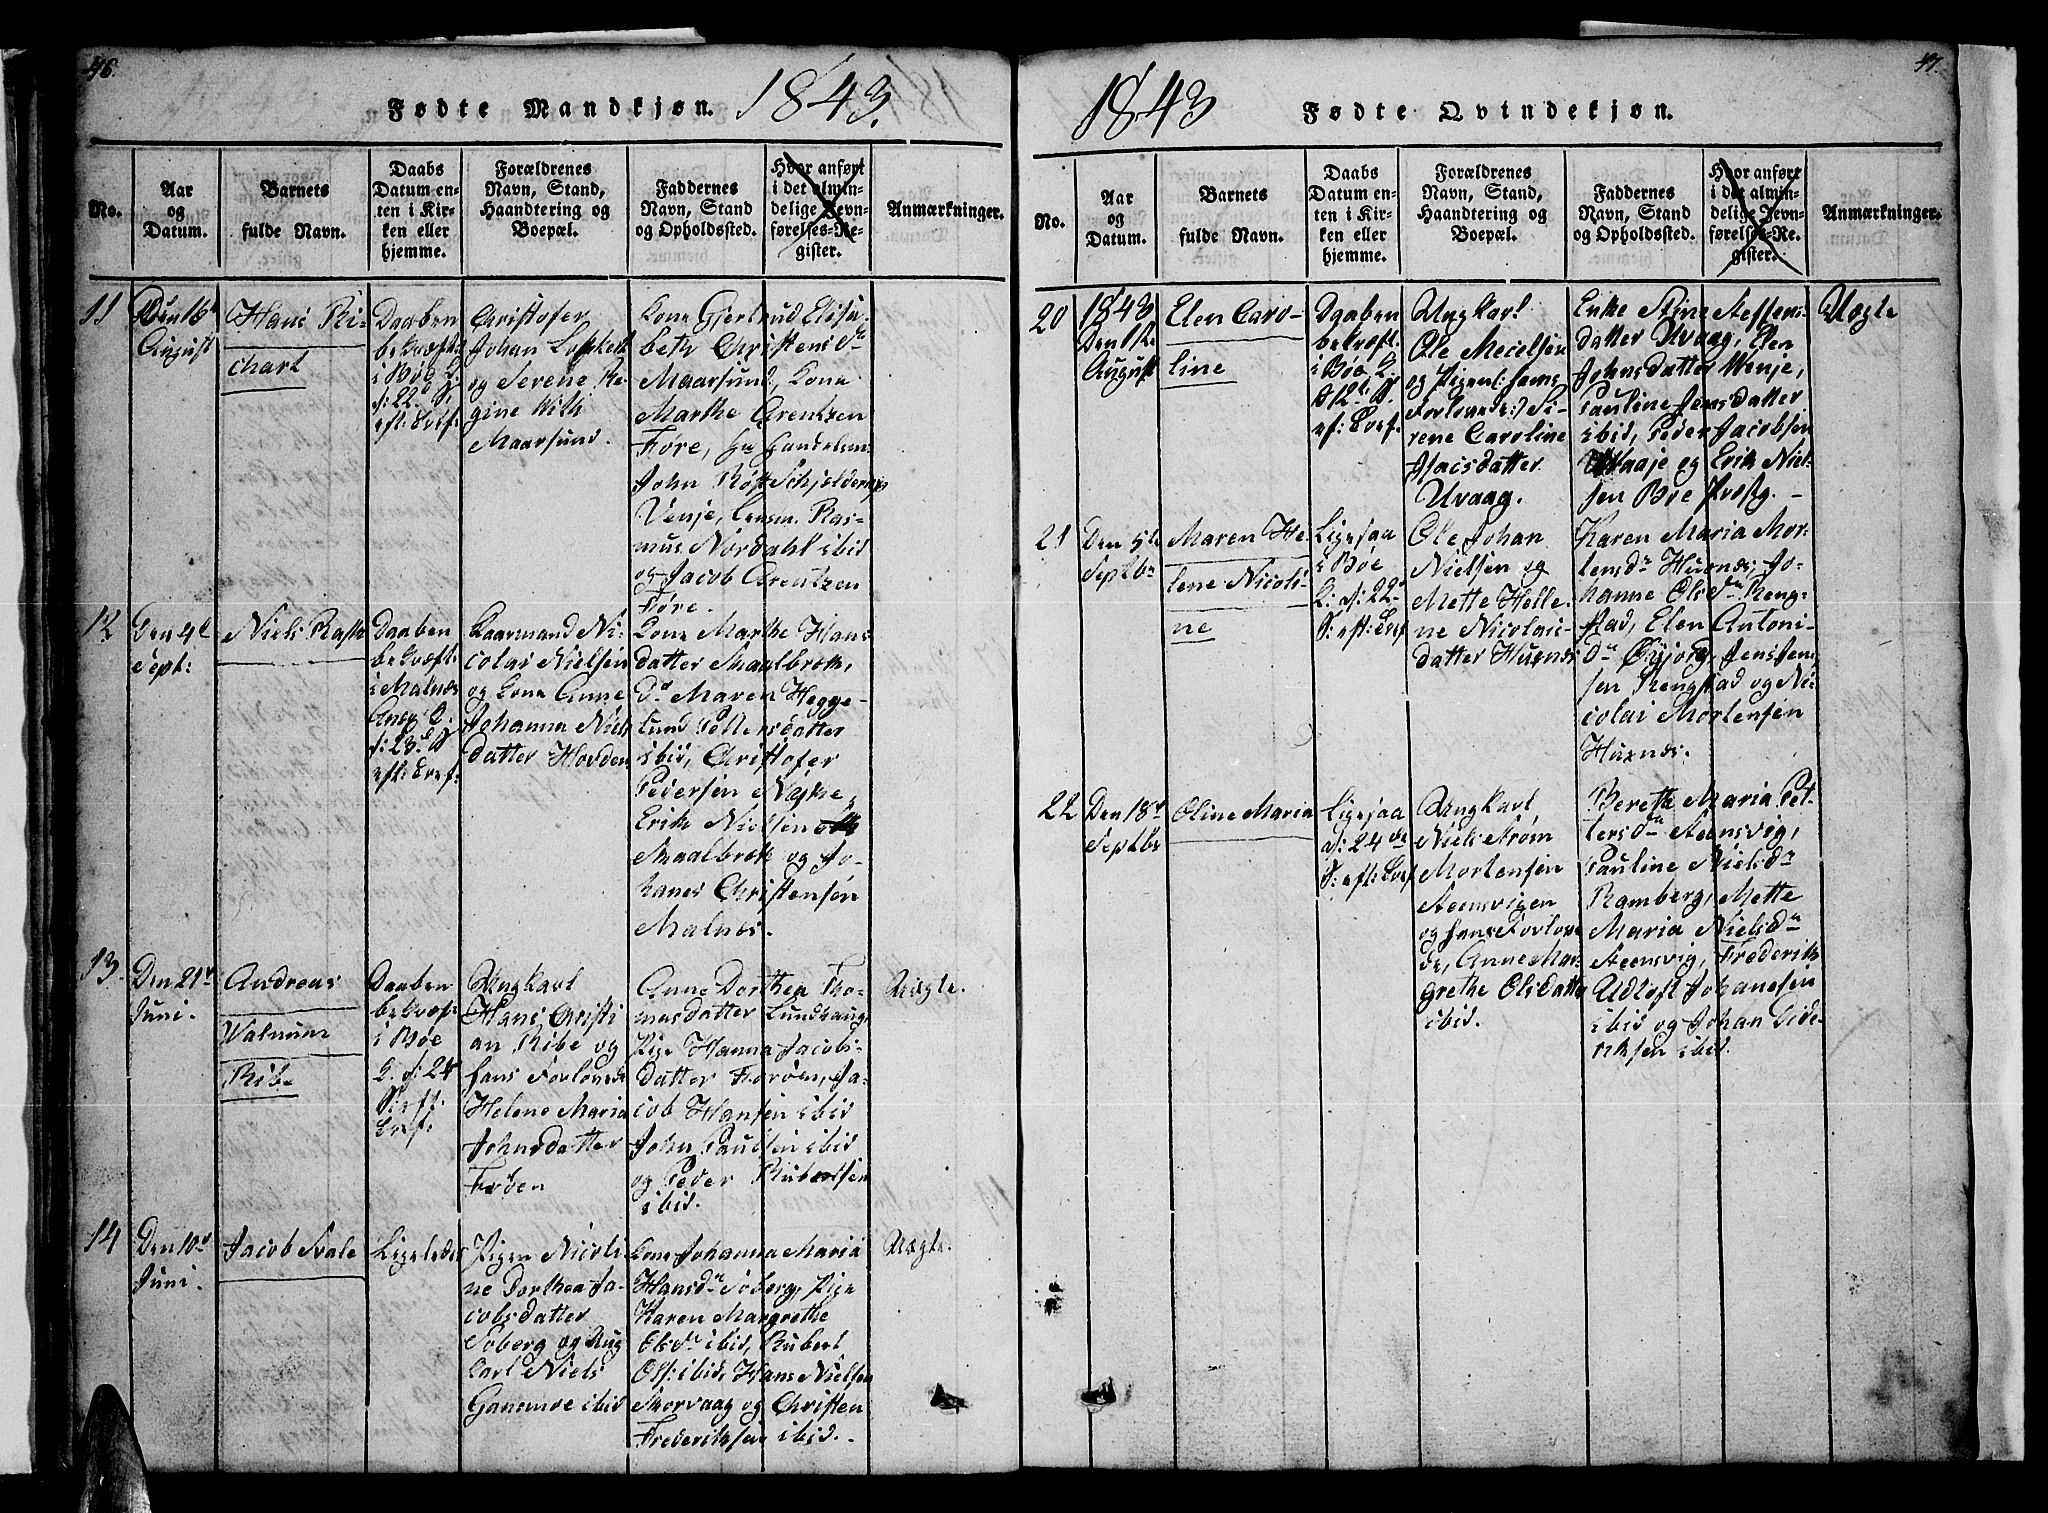 46.
Fødte Mandkjøn. 1843.
No.
Aar
og
Datum.
Barnets
fulde Navn.
Daabs
Datum en-
ten i Kir-
ken eller
hjemme.
Forældrenes
Navn, Stand,
Haandtering og
Boepæl.
Faddernes
Navn, Stand
og Opholdssted.
Hvor anført
i det almin-
delige Jevn-
førelses-Re-
gister.
Anmærkninger.
11
Den 16de
August
Hans Ri-
chart
Daaben
bekræft:
i Bøe K.
d: 22d S.
eft: Tref:
Christofer
Johan Lokkert
og Serene Re-
gine With
Maarsund.
Kone Gjertrud Elisa-
beth Christensdr
Maarsund, Kone
Marthe Arentzen
Føre, Hr Handelsm:
John Røst Schjelderup
Venje, Lensm. Ras-
mus Nordahl ibid
og Jacob Arentzen
Føre.
12
Den 4de
Sept:
Niels Rask
Daaben
bekræft:
i Malnes
Anex K.
d: 23d S
eft: Tref:
Gaarmand Ni-
colai Nielsen
og Kone Anne
Johanna Niels
datter Hovden
Kone Marthe Hans
datter Skaalbrek,
do Maren Hegge-
lund Pettersdatter
ibid, Christofer
Pedersen Nyke,
Erik Nielsen
Skaalbrek og Jo-
hanes Christensen
Malnes.
13.
Den 21de
Juni.
Andreas
Walnum
Ribe
Daaben
bekræf:
i Bøe
K. d: 24
S: eft:
Tref:
Ungkarl
Hans Christi
an Ribe og
hans Forlovede
Helene Maria
Johnsdatter
Føden
Anne Dorthea Tho-
masdatter Lundhaug,
Pige Hanna Jacobs-
datter Førøen, Ja-
cob Hansen ibid
John Paulsen ibid
og Peder Rubertsen
ibid.
Uægte.
14
Den 10de
Juni.
Jacob Svale
Ligeledes
Pigen Nicoli
ne Dorthea Ja-
cobsdatter
Søberg og Ung
karl Niels
Ganemoe ibid
Kone Johanna Maria
Hansdr Søberg, Pige
Karen Margrethe
Olsdr ibid, Rubert
Ols: ibid, Hans Nielsen
Skorvaag og Christen
Frederiksen ibid.
Uægte.
47.
1843 Fødte Qvindekjøn.
No.
Aar
og
Datum.
Barnets
fulde Navn.
Daabs
Datum en-
ten i Kir-
ken eller
hjemme.
Forældrenes
Navn, Stand,
Haandtering og
Boepæl.
Faddernes
Navn, Stand
og Opholdssted.
Hvor anført
i det almin-
delige Jevn-
førelses-Re-
gister.
Anmærkninger.
20
1843
Den 12te
August
Elen Caro-
line
Daaben
bekræft.
i Bøe K.
d 12te S.
ef: Tref.
Ungkarl
Ole Mecelsen
og Pigen (: hans
Forlovede :) Si-
rene Caroline
Isacsdatter
Uvaag.
Enke Stine Steffens
datter Uvaag, Elen
Johnsdatter Wenje,
Pauline Jensdatter
ibid, Peder Jacobsen
Waaje og Erik Niel-
sen Bøe Prestg. -
Uægte
21
Den 5te
Septbr
Maren He
lene Nicoli-
ne
Ligesaa
i Bøe
K: d: 22
S: eft: Tref
Ole Johan
Nielsen og
Mette Helle-
ne Nicolai-
datter Husnæs
Karen Maria Mor-
tensdr Husnæs, Jo-
hanne Olsdr Reng-
stad, Elen Antoni-
dr Øyjord, Jens Jen-
sen Rengstad og Ni-
colai Mortensen
Husnæs.
22
Den 18de
Septbr
Oline Maria
Ligesaa
d: 24de
S: eft: Tref
Ungkarl
Niels Strøm
Mortensen
Steensvigen
og hans Forlove
de, Anne Mar-
grethe Olsdatter
ibid.
Berethe Maria Pet-
tersdr Steensvig,
Pauline Nielsdr
Ramberg, Mette
Maria Nielsdr
Steensvig, Frederik
Udtoft Johanesen
ibid og Johan Dide-
riksen ibid.